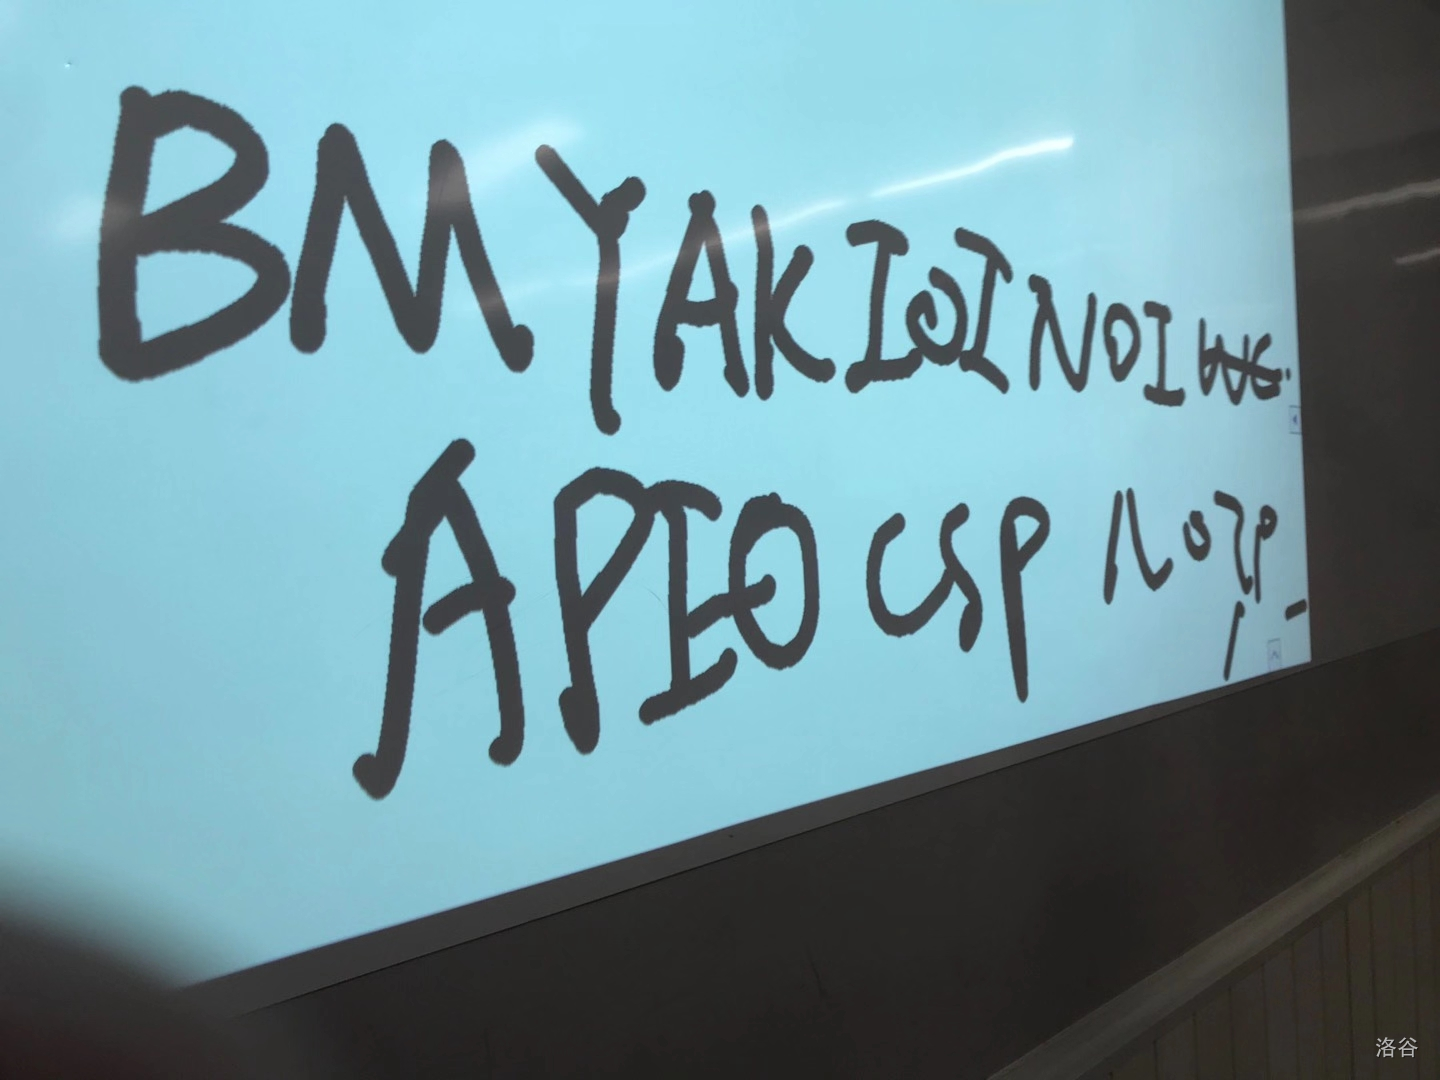 BMYAK IOI NOI WC
APIO CSP NOIP
洛谷